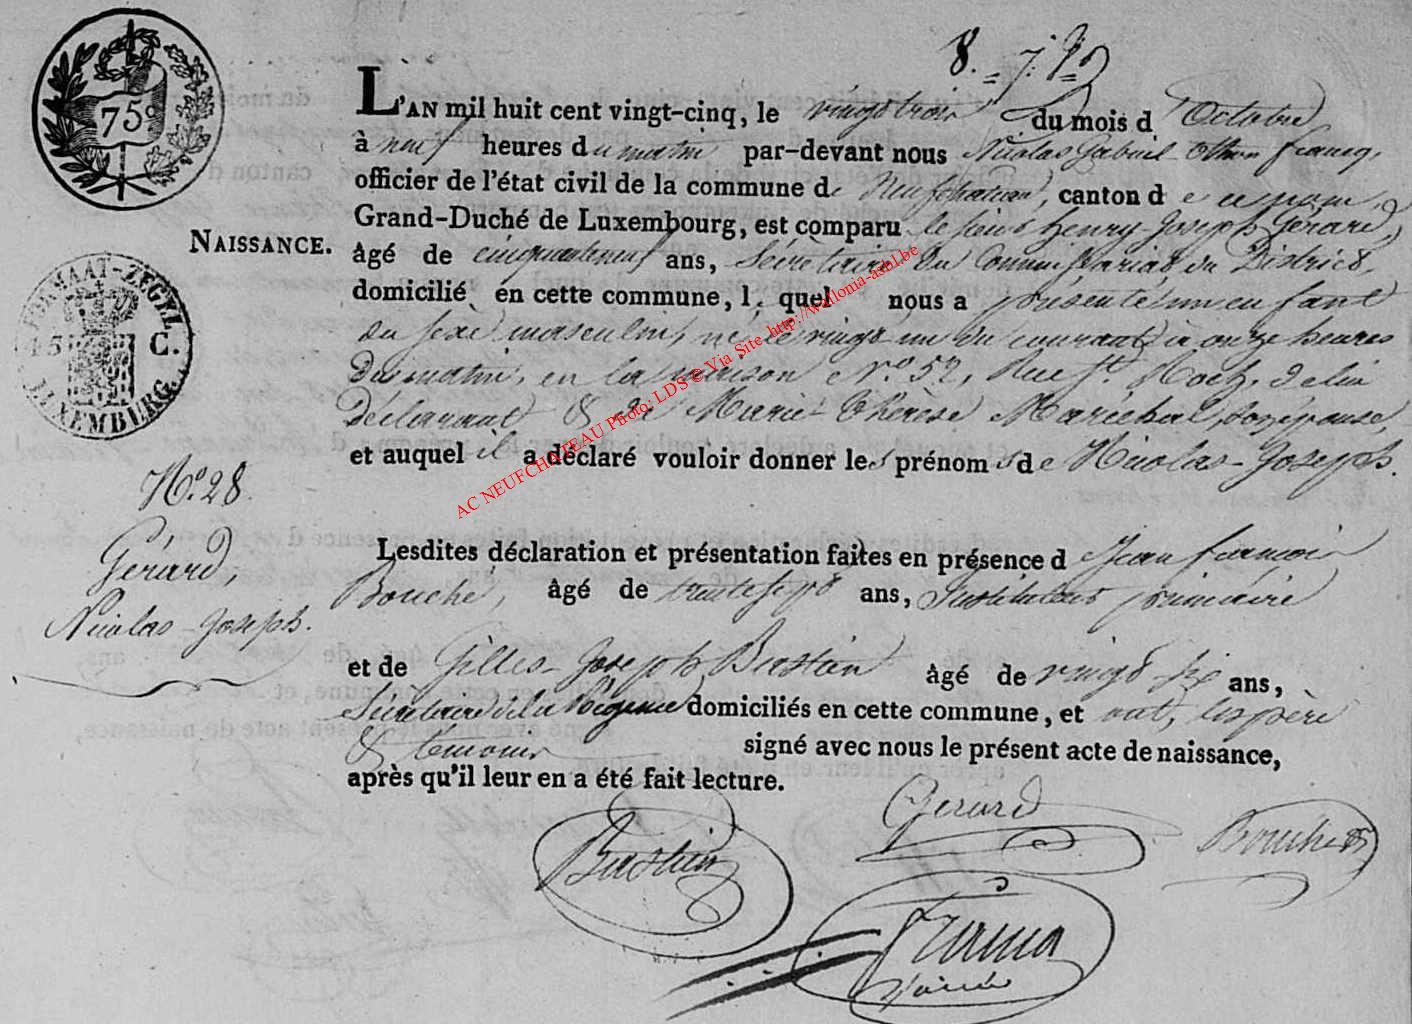 75c
8.
L'AN mil huit cent vingt-cinq, le vingt trois du mois d'Octobre
à neuf heures du matin par-devant nous Nicolas Gabriel Othon Francq,
officier de l'état civil de la commune de Neufchateau, canton de ce nom,
Grand-Duché de Luxembourg, est comparu le sieur Henry-Joseph Gérard,
NAISSANCE.
âgé de cinquanteneuf ans, Sécrétaire du Commissariat du District,
domicilié en cette commune, lequel nous a présenté un enfant
FORMAAT-ZEGEL
15 C.
LUXEMBERG
du sexe masculin, né le vingt un du courant à onze heures
du matin, en la maison No. 52, Rue St Roch, de lui
déclarant & de Marie-Thérèse Maréchal, son épouse,
et auquel il a déclaré vouloir donner les prénoms de Nicolas-Joseph.
No. 28.
Gérard,
Nicolas-Joseph.
Lesdites déclaration et présentation faites en présence de Jean François
Bouché, âgé de trente sept ans, Instituteur primaire
et de Gilles-Joseph Bastin âgé de vingt six ans,
Sécrétaire de la Régence domiciliés en cette commune, et ont, les père
& témoins signé avec nous le présent acte de naissance,
après qu'il leur en a été fait lecture.
Gérard
Bouché
Bastin
AC NEUFCHATEAU Photo: LDS © Via Site http://wallonia-asbl.be